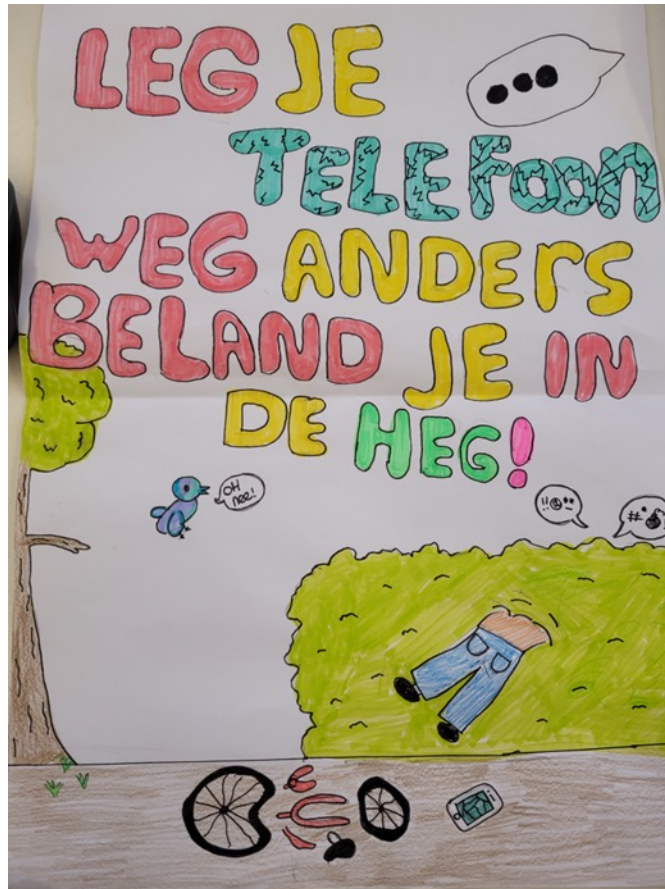 LEG JE
TELEFOON
WEG ANDERS
BELAND JE IN
DE HEG!
OH
nee!